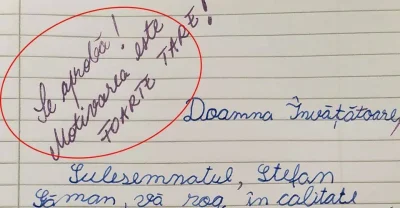 Se aprobă!
Motivarea este
FOARTE TARE!
Doamna Învățătoare,
Subsemnatul, Ștefan
Găman, vă rog, în calitate